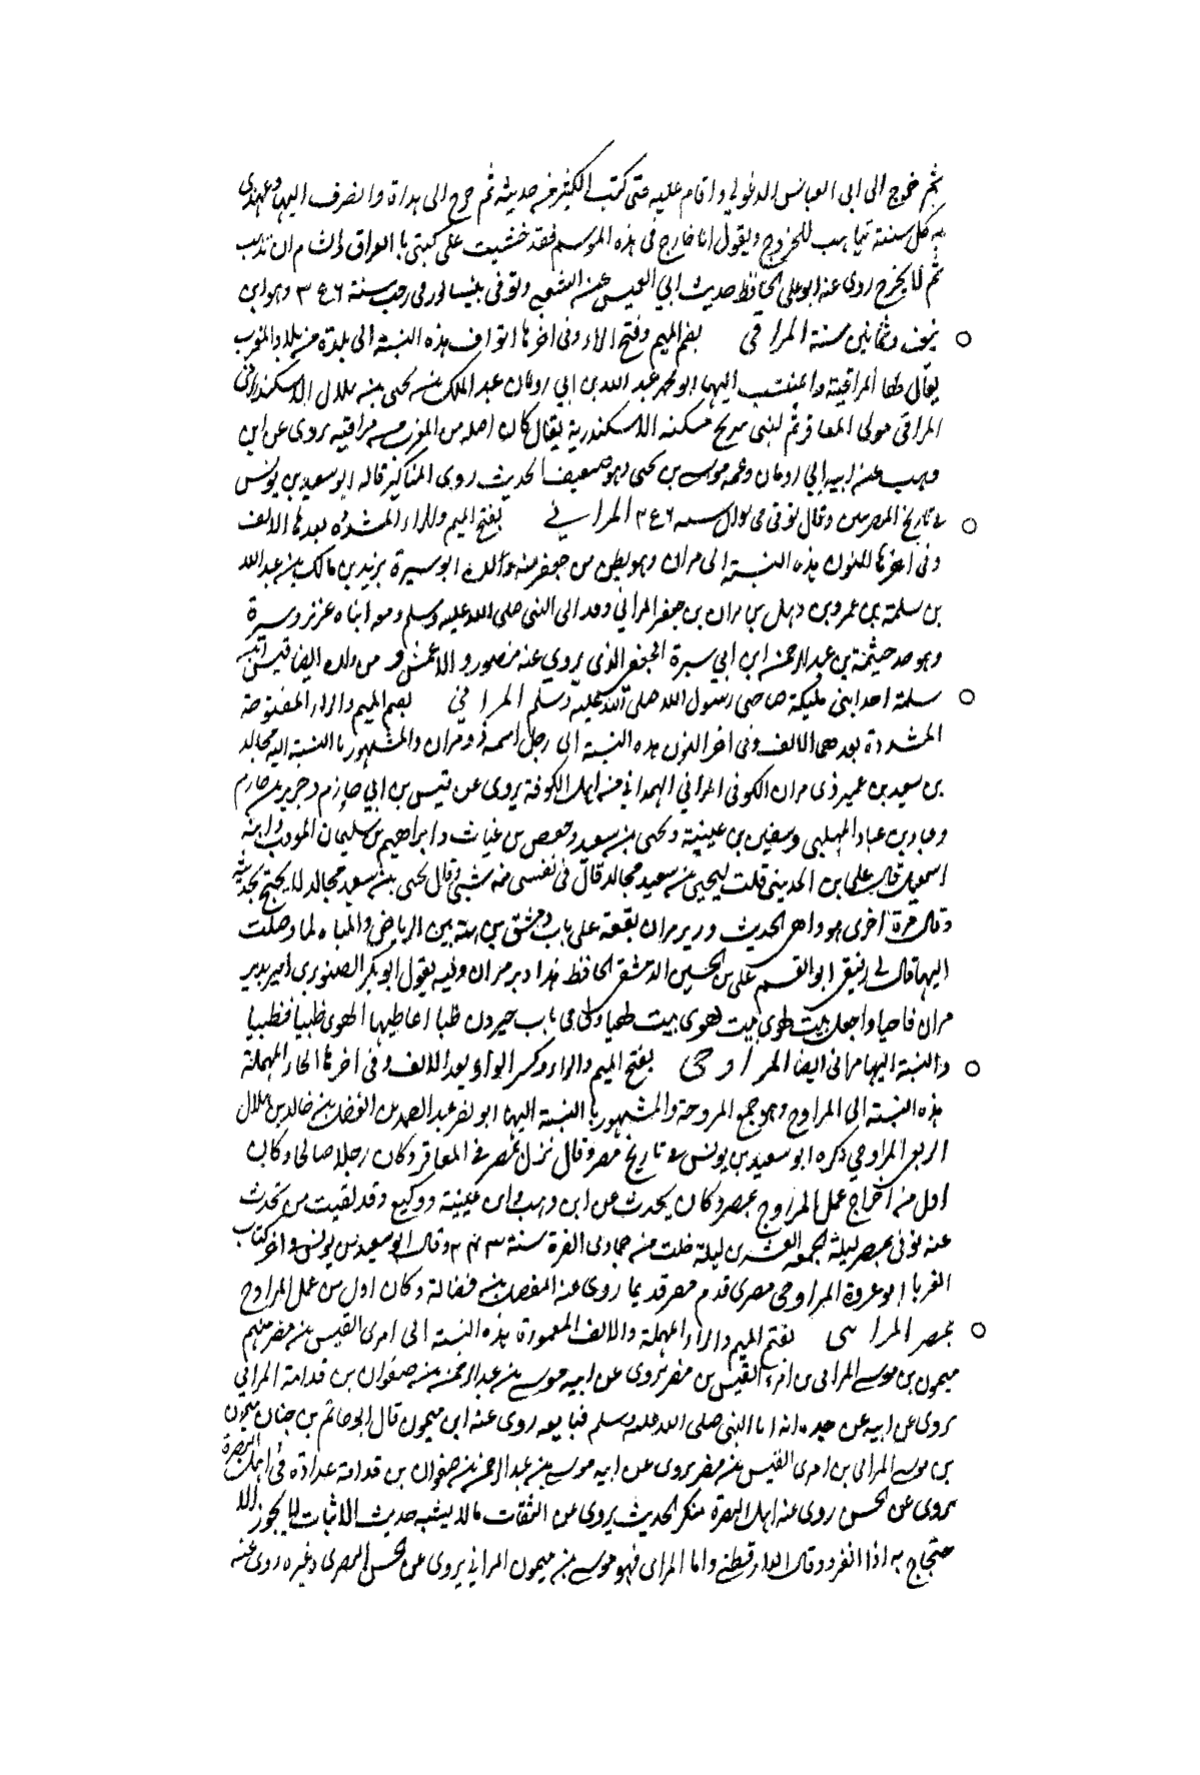 ثم خرج الى ابى العباس الدغولي واقام عليه حتى كتب الكثير من حديثه ثم خرج الى هراة وانصرف اليها وعهدى
به كل سنة يتاهب للخروج ويقول انا خارج فى هذه الموسم فقد خشيت على كتبى بالعراق والشام ان تذهب
ثم لا يخرج روى عنه ابو على الحافظ حديث ابي العميس عن الشعبى وتوفى بنيسابور فى رجب سنة ٣٤٦ وهو ابن
نيف وثمانين سنة المراقى بضم الميم وفتح الراء وفى اخرها القاف هذه النسبة الى بلدة من بلاد المغرب
يقال لها المراقية والمنتسب اليها ابو محمد عبد الله بن ابي رومان عبد الملك بن يحيى بن هلال الاسكندرانى
المراقى مولى المعافر ثم لبنى سريح مسكنه الاسكندرية يقال كان اصله من المغرب من مراقيه يروى عن ابن
وهب عن ابيه ابي رومان وعمه موسى بن يحيى وهو ضعيف الحديث روى المناكير قاله ابو سعيد بن يونس
فى تاريخ المصريين وقال توفى فى شوال سنه ٣٤٦ المرانى بفتح الميم والراء المشدده بعدها الالف
وفى اخرها النون هذه النسبة الى مران وهو بطن من جعفر منهم ابو سبرة يزيد بن مالك بن عبد الله
بن سلمة بن عمرو بن ذهل بن مران بن جعفر المرانى وفد الى النبى صلى الله عليه وسلم ومعه ابناه عزيز وسبرة
وهو جد خيثمة بن عبد الرحمن ابن ابي سبرة الجعفى الذى يروى عنه منصور والاعمش ومن ولده ايضا قيس بن
سلمة احد ابنى مليكة صاحبى رسول الله صلى الله عليه وسلم المرانى بضم الميم والراء المفتوحة
المشددة بعدهما الالف وفى اخر النون هذه النسبة الى رجل اسمه ذو مران والمشهور بالنسبة اليه مجالد
بن سعيد بن عمير ذى مران الكوفى المرانى الهمدانى من اهل الكوفة يروى عن قيس بن ابي حازم وجرير بن حازم
وعباد بن عباد المهلبى وسفين بن عيينة ويحيى بن سعيد وحفص بن غياث وابراهيم بن سليمان المودب وابنه
اسمعيل قال على بن المدينى قلت ليحيى بن سعيد مجالد قال فى نفسى منه شىء وقال يحيى بن سعيد مجالد لا يحتج بحديثه
وقال مرة اخرى هو واهى الحديث ودير مران بقعة على باب دمشق بين الرياض والمياه لما وصلت
اليها قال لى رفيقى ابو القسم على بن الحسين الدمشقى الحافظ هذا دير مران وفيه يقول ابو بكر الصنوبرى امر بدير
مران فاحيا واجعل بيت لهوى بيت لهيا ولى فى باب جيرون ظبا اعاطيها الهوى ظبيا فظبيا
والنسبة اليها مرانى ايضا المراوحى بفتح الميم والراء وكسر الواو بعد الالف وفى اخرها الحاء المهملة
هذه النسبة الى المراوح وهو جمع المروحة والمشهور بالنسبة اليها ابو نصر عبد الصمد بن الفضل بن خالد بن هلال
الربعى المراوحى ذكره ابو سعيد بن يونس فى تاريخ مصر وقال نزل بمصر فى المعافر وكان رجلا صالحا وكان
اول من اخراج عمل المراوح بمصر وكان يحدث عن ابن وهب وابن عيينة ووكيع وقد لقيت من يحدث
عنه توفى بمصر ليلة الجمعه لعشرين ليلة خلت من جمادى الاخرة سنة ٢٤٣ وقال ابو سعيد بن يونس فى اخر كتاب
الغربا ابو عروة المراوحى مصرى قدم مصر قديما روى عنه المفضل بن فضالة وكان اول من عمل المراوح
بمصر المراىى بفتح الميم والراء المهملة والالف المهموزة هذه النسبة الى امرى القيس بن مضر منهم
ميمون بن موسى المرائى من امرء القيس بن مضر يروى عن ابيه موسى بن عبد الرحمن بن صفوان بن قدامة المرائى
يروى عن ابيه عن جده انه اتا النبى صلى الله عليه وسلم فبايعه روى عنه ابن ميمون قال ابو حاتم بن حبان ميمون
بن موسى المرائى بن امرى القيس بن مضر يروى عن ابيه موسى بن عبد الرحمن بن صفوان بن قدامة عداده فى اهل البصرة
يروى عن الحسن روى عنه اهل البصرة منكر الحديث يروى عن الثقات ما لا يشبه حديث الاثبات لا يجوز الا
حتجاج به اذا انفرد وقال الدارقطنى واما المراى فهو موسى بن ميمون المرائى يروى عن الحسن البصرى وغيره روى عنه